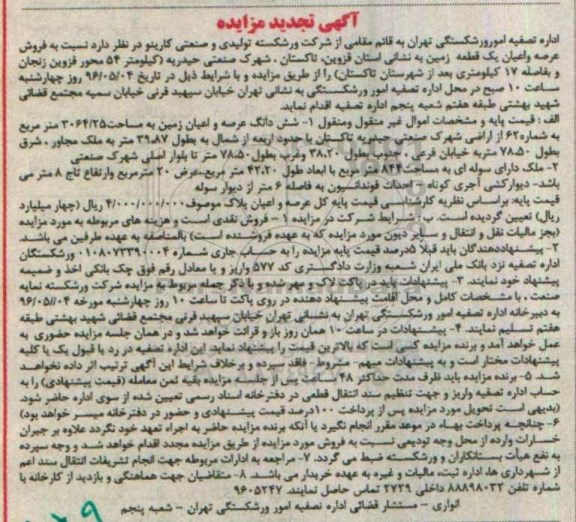 آگهی تجدید مزایده
اداره تصفیه امورورشکستگی تهران به قائم مقامی از شرکت ورشکسته تولیدی و صنعتی کارینو در نظر دارد نسبت به فروش
عرصه واعیان یک قطعه زمین به نشانی استان قزوین، تاکستان ، شهرک صنعتی حیدریه (کیلومتر ۵۴ محور قزوین زنجان
و بفاصله ۱۷ کیلومتری بعد از شهرستان تاکستان) را از طریق مزایده و با شرایط ذیل در تاریخ ۹۶/۰۵/۰۴ روز چهارشنبه
ساعت ۱۰ صبح در محل اداره تصفیه امور ورشکستگی به نشانی تهران خیابان سپهبد قرنی خیابان سمیه مجتمع قضائی
شهید بهشتی طبقه هفتم شعبه پنجم اداره تصفیه اقدام نماید.
الف : قیمت پایه و مشخصات اموال غیر منقول ومنقول ۱- شش دانگ عرصه و اعیان زمین به مساحت۳۰۶۴/۲۵ متر مربع
به شماره۶۲ از اراضی شهرک صنعتی حیدریه تاکستان با حدود اربعه از شمال به بطول ۳۹،۸۷ متر به ملک مجاور ، شرق
بطول ۷۸،۵۰ متربه خیابان فرعی ، جنوب بطول ۳۸،۲۰ وغرب بطول ۷۸،۵۰ متر تا بلوار اصلی شهرک صنعتی
۲- ملک دارای سوله ای به مساحت ۸۴۴ متر مربع با ابعاد طول ۴۲،۲۰ متر مربع،عرض ۲۰ مترمربع وارتفاع تاج ۸ متر می
باشد- دیوارکشی آجری کوتاه – احداث فوندانسیون به فاصله ۶ متر از دیوار سوله
قیمت پایه: براساس نظریه کارشناسی قیمت پایه کل عرصه و اعیان پلاک موصوف۴/۰۰۰/۰۰۰/۰۰۰ ریال (چهار میلیارد
ریال) تعیین گردیده است. ب : شرایط شرکت در مزایده ۱ - فروش نقدی است و هزینه های مربوطه به مورد مزایده
(بجز مالیات نقل و انتقال و سایر دیون مورد مزایده که به عهده فروشنده است) بالمناصفه به عهده طرفین می باشد.
۲- پیشنهاددهندگان باید قبلا ۵درصد قیمت پایه مزایده را به حساب جاری شماره ۰۱۰۸۰۷۳۳۹۰۰۴ ورشکستگان
اداره تصفیه نزد بانک ملی ایران شعبه وزارت دادگستری کد ۵۷۷ واریز و یا معادل رقم فوق چک بانکی اخذ و ضمیمه
پیشنهاد خود نمایند. ۳- پیشنهادات باید در پاکت لاک و مهر شده و با ذکر جمله مربوط به مزایده شرکت ورشکسته نمایه
صنعت ، با مشخصات کامل و محل اقامت پیشنهاد دهنده در روی پاکت تا ساعت ۱۰ روز چهارشنبه مورخه ۹۶/۰۵/۰۴
به دبیرخانه اداره تصفیه امور ورشکستگی تهران به نشانی تهران خیابان سپهبد قرنی مجتمع قضائی شهید بهشتی طبقه
هفتم تسلیم نمایند. ۴- پیشنهادات در ساعت ۱۰ همان روز باز و قرائت خواهد شد و در همان جلسه مزایده حضوری به
عمل خواهد آمد و برنده مزایده کسی است که بالاترین قیمت را پیشنهاد نماید. این اداره تصفیه در رد یا قبول یک یا کلیه
پیشنهادات مختار است و به پیشنهادات مبهم- مشروط- فاقد سپرده و برخلاف شرایط این آگهی ترتیب اثر داده نخواهد
شد. ۵- برنده مزایده باید ظرف مدت حداکثر ۴۸ ساعت پس از جلسه مزایده بقیه ثمن معامله (قیمت پیشنهادی) را به
حساب اداره تصفیه واریز و جهت تنظیم سند انتقال قطعی در دفترخانه اسناد رسمی تعیین شده از سوی اداره حاضر شود.
(بدیهی است تحویل مورد مزایده پس از پرداخت ۱۰۰درصد قیمت پیشنهادی و حضور در دفترخانه میسر خواهد بود)
۶- چنانچه پرداخت بهاء در موعد مقرر انجام نگیرد یا آنکه برنده مزایده حاضر به اجراء تعهد خود نگردد علاوه بر جبران
خسارات وارده از محل وجه تودیعی نسبت به فروش مورد مزایده از طریق مزایده مجدد اقدام خواهد شد و وجه سپرده
به نفع هیأت بستانکاران و ورشکسته ضبط می گردد. ۷- مراجعه به ادارات مربوطه جهت انجام تشریفات انتقال سند اعم
از شهرداری ها، اداره ثبت، مالیات و غیره به عهده خریدار می باشد. ۸- متقاضیان جهت هماهنگی و بازدید از کارخانه با
شماره تلفن ۸۸۸۹۸۰۳۳ داخلی ۲۷۲۹ تماس حاصل نمایند. ۹۶۰۵۲۴۷
انواری – مستشار قضائی اداره تصفیه امور ورشکستگی تهران – شعبه پنجم